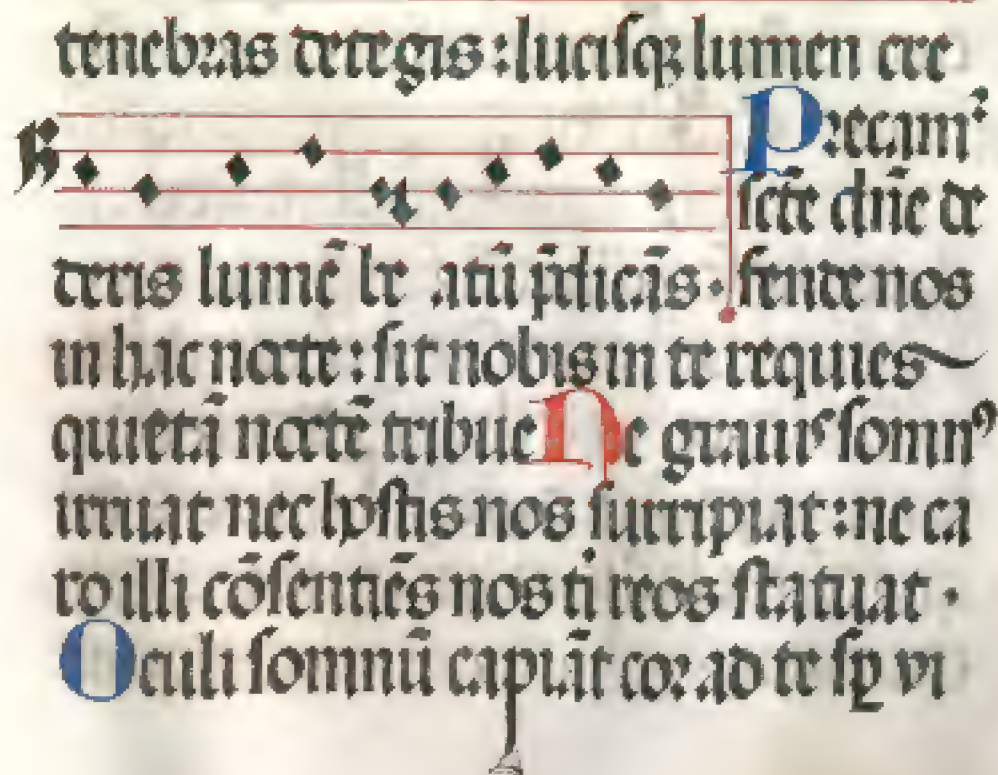 tenebras detegis : lucisqꝫ lumen cre
Precamᷣ
scē dn̄e de
deris lumē be atū p̄dicās · fende nos
in hac nocte : sit nobis in te requies
quietā noctē tribue Ne grauis somnꝰ
irruat nec hostis nos surripiat : ne ca
ro illi cōsentiēs nos ti reos statuat ·
Oculi somnū capiāt cor ad te sp̱ vi